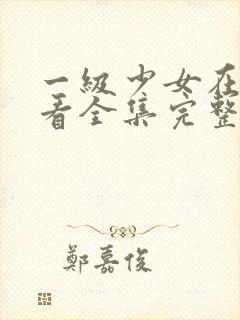 一級少女在
看全集完整
鄭嘉俊